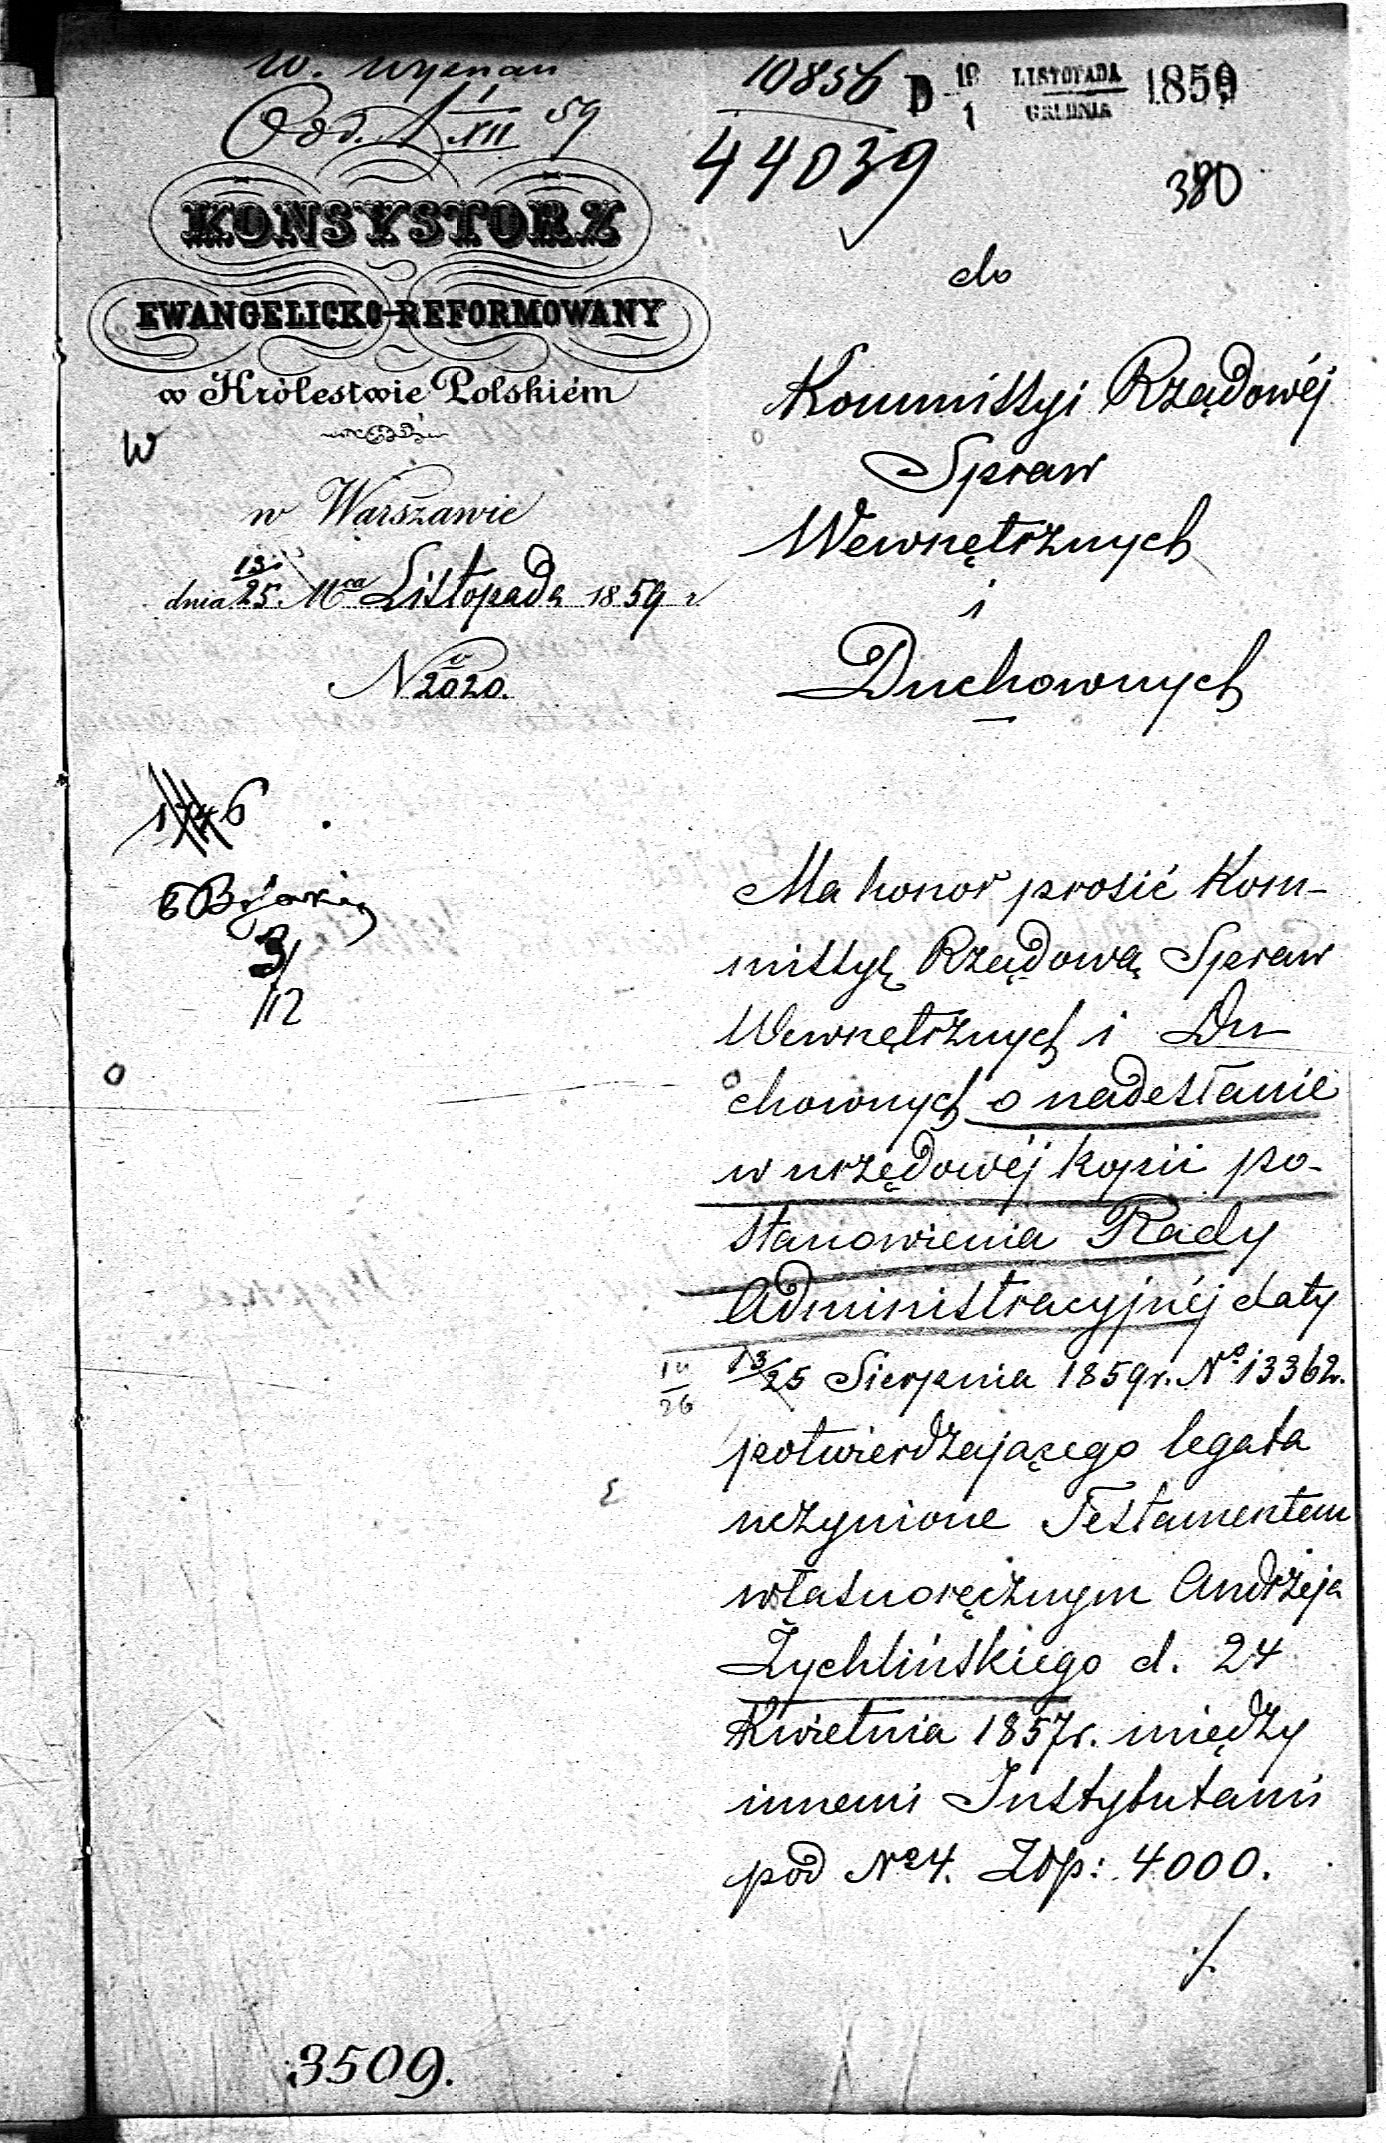 W. Wyznań
Odd. 1 1/XII 59
10856 D 19/1 LISTOPADA/GRUDNIA 1859
44039
380
KONSYSTORZ
EWANGELICKO-REFORMOWANY
w Królestwie Polskiém
W
w Warszawie
dnia 13/25 Mca Listopada 1859
No 2020.
do
Kommissyi Rządowéj
Spraw
Wewnętrznych
i
Duchownych
3/12
Ma honor prosić Kom-
missyę Rządową Spraw
Wewnętrznych i Du
chownych o nadesłanie
w urzędowéj kopii po-
stanowienia Rady
Administracyjnéj daty
13/25 Sierpnia 1859 r. No 13362.
potwierdzającego legata
uczynione Testamentem
własnoręcznym Andrzeja
Żychlińskiego d. 24
Kwietnia 1857 r. między
innemi Instytutami
pod No 4. Złp: 4000.
./.
3509.